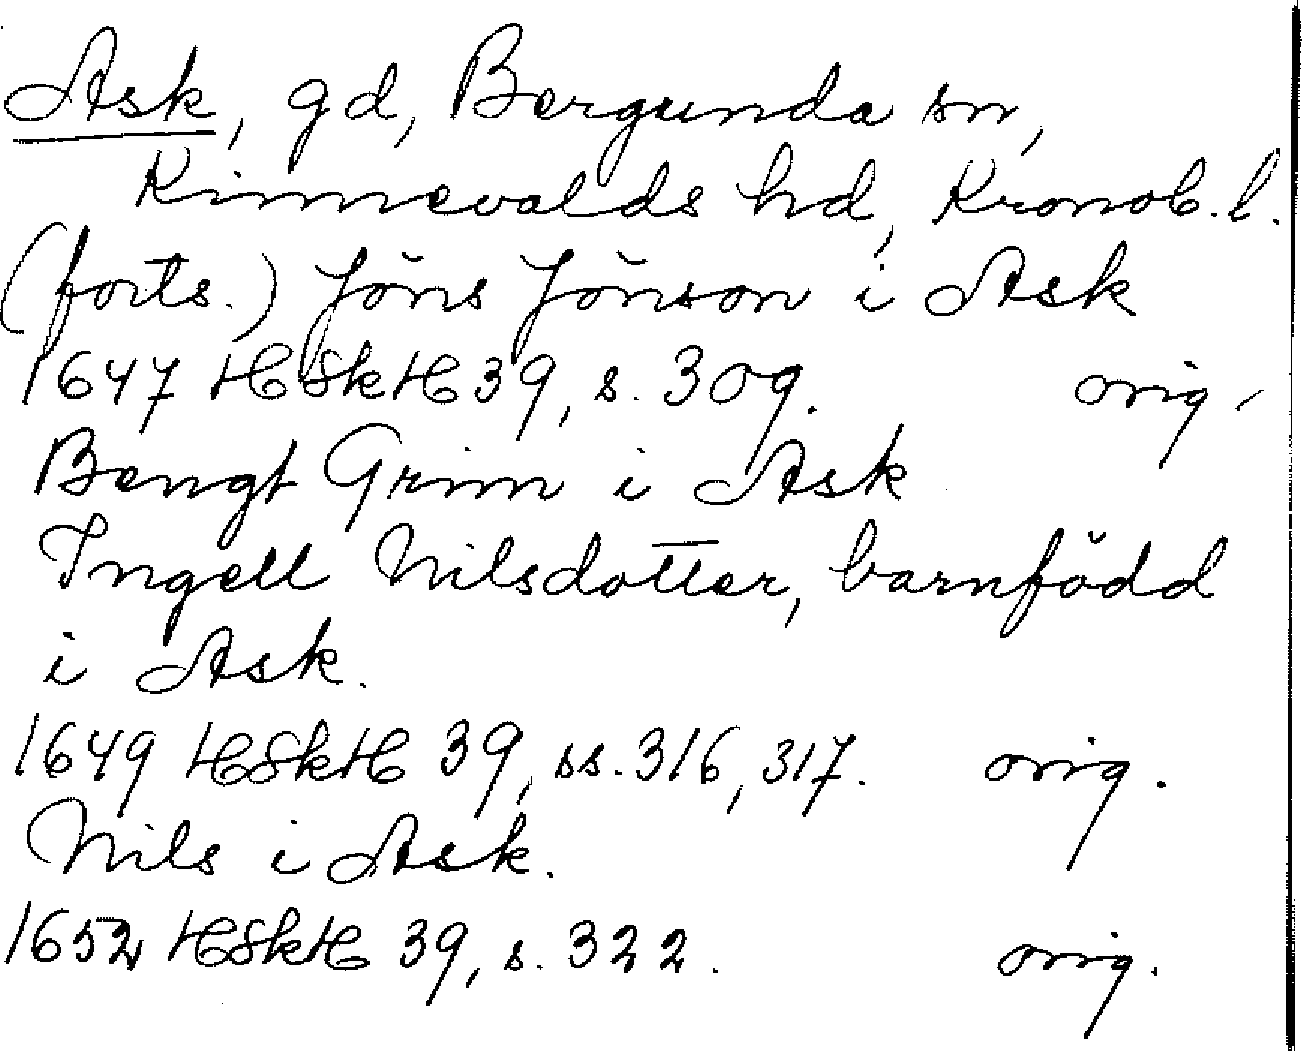 Ask, gd, Bergunda sn,
Kinnevalds hd, Kronob. l.
(forts.) Jöns Jönson i Ask
1647 HSkH 39, s. 309. orig.
Bengt Grim i Ask
Ingell Nilsdotter, barnfödd
i Ask.
1649 HSkH 39, ss. 316, 317. orig.
Nils i Ask.
1652 HSkH 39, s. 322. orig.